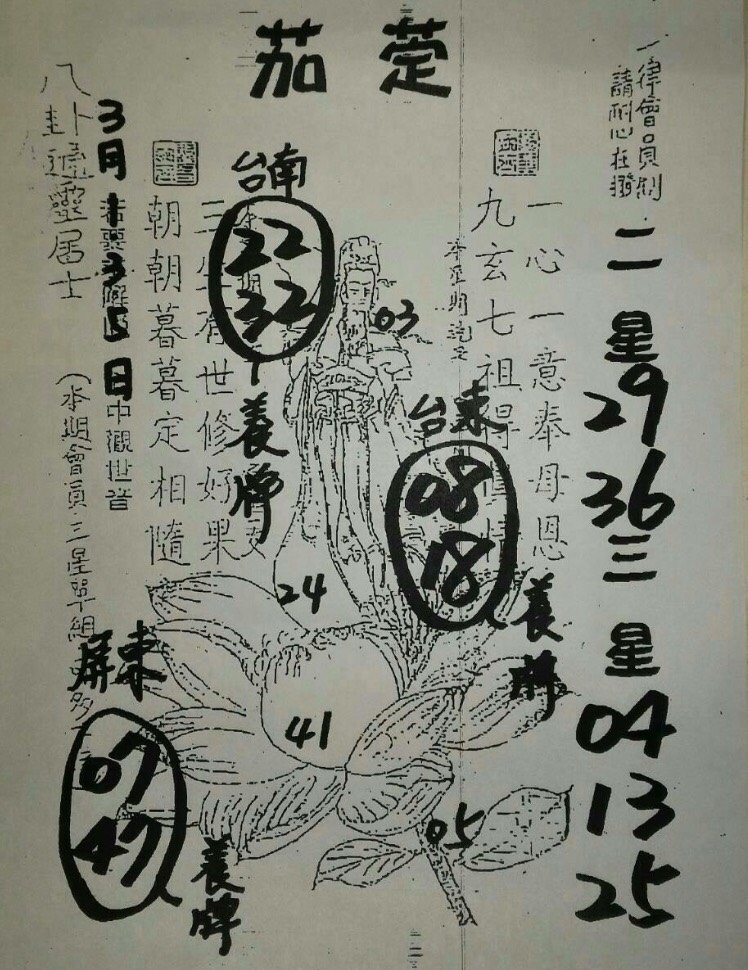 茄萣
一律會員制
請耐心在撥
二星
29
36
三星
04
13
25
一心一意奉母恩
九玄七祖得
03
台東
08
18
養牌
台南
22
32
養牌
世修好果
朝朝暮暮定相隨
24
41
05
八卦通靈居士
3月
5日
中觀世音
(本期會員三星單組
屏東
07
47
養牌